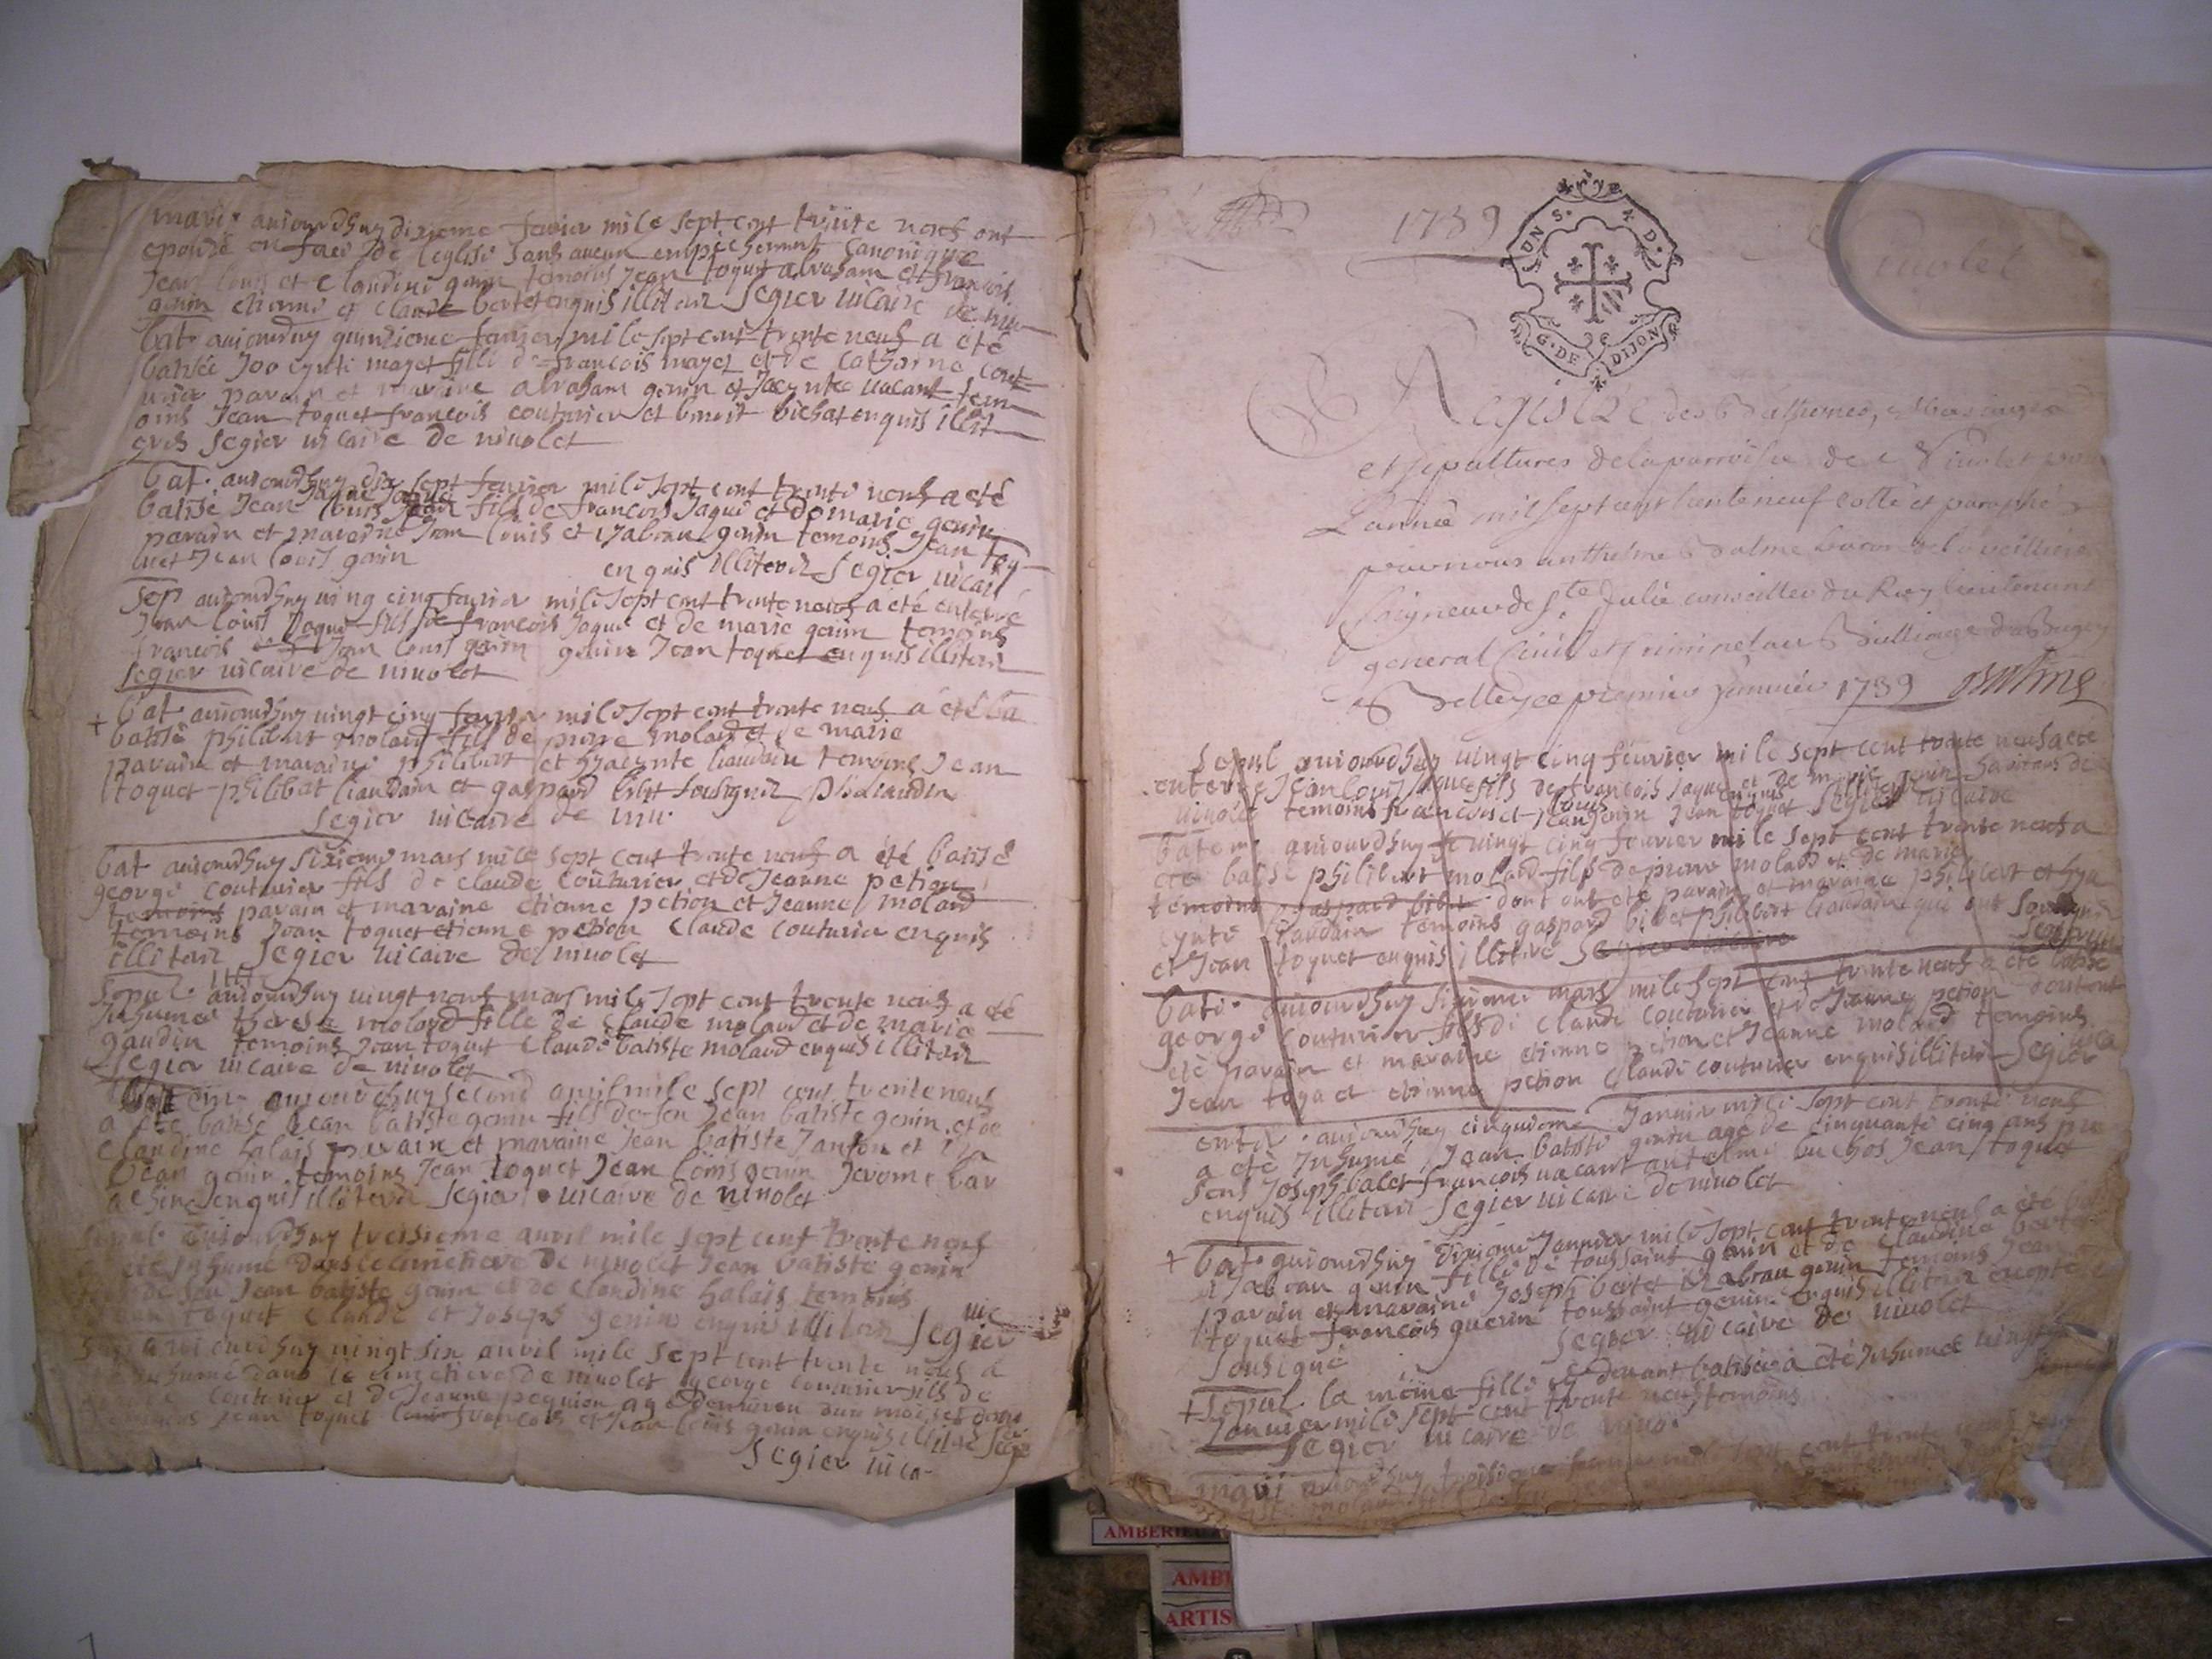 mari. aujourdhuy dixieme fevrier mile sept cent trente neuf ont
epousé en face de leglise sans aucun empechement canonique
Jean louis et Claudine genin temoins Jean toquet abraham et francois
genin etienne et claude bertet enquis illiterez Segier vicaire de niv
bat. aujourdhuy quinzieme fevrier mile sept cent trente neuf a été
batisée mayet fille de francois mayet et de catherine cout
urier parain et maraine abraham genin et Jacynte vacant tem
oins Jean toquet francois couturier et benoit bichat enquis illit
erés Segier vicaire de nivolet
bat. aujourdhuy dix sept fevrier mile sept cent trente neuf a été
batisé Jean louis fils de francois Jaque et de marie genin
parain et maraine Jean louis et ysabeau genin temoins Jean toq
uet Jean louis genin
enquis illiterez Segier vicair
Sep aujourdhuy ving cinq fevrier mile sept cent trente neuf a été enterré
Jean louis Jaque fils de francois Jaque et de marie genin temoins
francois Jean louis genin genin Jean toquet enquis illiterez
Segier vicaire de nivolet
+ bat. aujourdhuy vingt cinq fevrier mile sept cent trente neuf a été ba
batisé philibert molard fils de pierre molard et de marie
parain et maraine philibert et hyacynte liaudain temoins Jean
toquet philibert liaudain et gaspard bibet sousignez phliaudin
Segier vicaire de niv.
bat aujourdhuy sixieme mars mile sept cent trente neuf a été batisé
george couturier fils de claude couturier et de Jeanne petion
temoins parain et maraine etienne petion et Jeanne molard
temoins Jean toquet etienne petion claude couturier enquis
illiterez Segier vicaire de nivolet
Sepul. aujourdhuy vingt neuf mars mile sept cent trente neuf a été
Inhumée therese molard fille de claude molard et de marie
gaudin temoins Jean toquet claude batiste molard enquis illiterez
Segier vicaire de nivolet
aujourdhuy second avril mile sept cent trente neuf
a été batisé Jean batiste genin fils de feu Jean batiste genin et de
claudine balais parain et maraine Jean batiste Janton et
genin temoins Jean toquet Jean louis genin Jerome bar
enquis illiterez Segier vicaire de nivolet
Sepul. aujourdhuy treisieme avril mile sept cent trente neuf
été Inhumé dans le cimetiere de nivolet Jean batiste genin
de feu Jean batiste genin et de claudine balais temoins
toquet claude et Joseph genin enquis illiterez Segier vic
Sep aujourdhuy vingt six avril mile sept cent trente neuf a
inhumé dans le cimetiere de nivolet george couturier fils de
couturier et de Jeanne pequion agé denviron un mois et demi
temoins Jean toquet francois et Jean louis genin enquis illiterez Segie
Segier vica
1739
UN S. A D.
G. DE DIJON
Registre des Baptemes, Mariages
et sepultures de la parroisse de Nivolet pour
L'année mil sept cent trente neuf cotté et paraphé
par nous anthelme Balme baron de la veilliere
Seigneur de Ste Julie conseiller du Roy lieutenant
general Civil et Criminel au Bailliage du Bugey
a Belley ce premier janvier 1739 Balme
Sepul aujourdhuy vingt cinq fevrier mile sept cent trente neuf a été
enterré Jean louis Jaque fils de francois Jaque et de marie genin havitans de
nivolet temoins francois et Jean louis genin Jean toquet enquis illiterez Segier vicaire
batem. aujourdhuy vingt cinq fevrier mile sept cent trente neuf a
été batisé philibert molard fils de pierre molard et de marie
temoins gaspard bibet dont ont été parain et maraine philibert et hya
cynte liaudain temoins gaspard bibet philibert liaudain qui ont sousigné
et Jean toquet enquis illiteré Segier vicaire
bati. aujourdhuy sixieme mars mile sept cent trente neuf a été batisé
george Couturier fils de claude Couturier et de Jeanne petion dont ont
été parain et maraine etienne petion et Jeanne molard temoins
Jean toqa et etienne petion claude couturier enquis illiterez Segier vica
enter. aujourdhuy cinquieme Janvier mile sept cent trente neuf
a été Inhumé Jean batiste genin agé de cinquante cinq ans pre
sens Joseph balet francois vacant antelme buchos Jean toquet
enquis illiterez Segier vicaire de nivolet
+ bat. aujourdhuy dixieme Janvier mile sept cent trente neuf a été
ysabeau genin fille de toussaint genin et de claudine bertet
parain et maraine Joseph bertet ysabeau genin temoins Jean
toquet francois guerin toussaint genin enquis illiterez excepté
sousigné Segier vicaire de nivolet
+ Sepul. la même fille cy devant batisée a été Inhumée vingt
Janvier mile sept cent trente neuf temoins
Segier vicaire de nivo.
aujourdhuy troisieme fevrier mile sept cent trente neuf
AMBERIEU
AMB
ARTIS